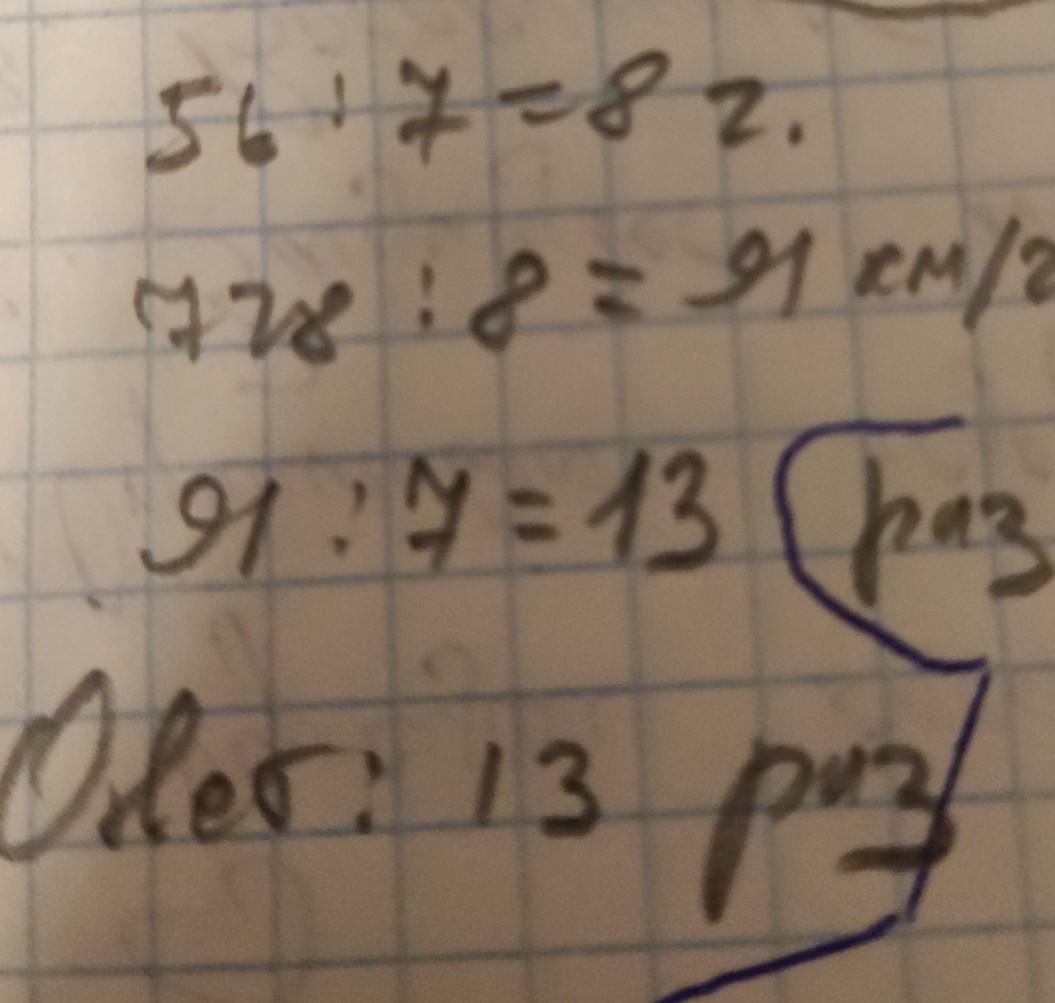 56 : 7 = 8 г.
728 : 8 = 91 км/г
91 : 7 = 13 раз
Ответ: 13 раз